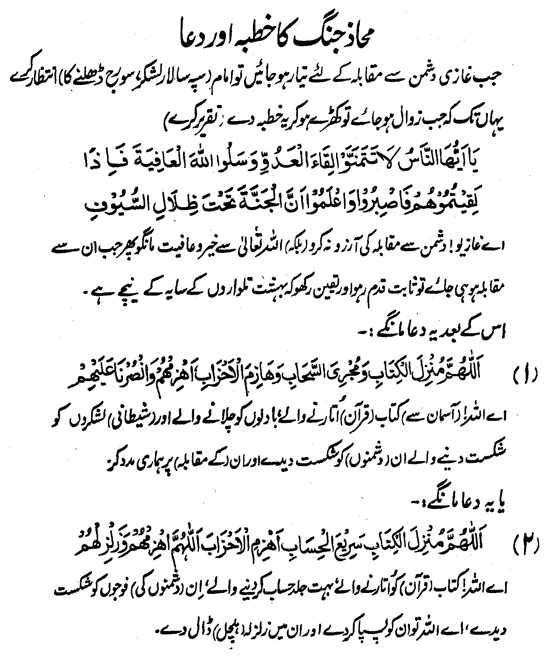 محاذ جنگ کا خطبہ اور دعا
جب غازی دشمن سے مقابلہ کے لئے تیار ہو جائیں تو امام (سپہ سالار لشکر، سورج ڈھلنے کا) انتظار کرے
یہاں تک کہ جب زوال ہو جائے تو کھڑے ہو کر یہ خطبہ دے (تقریر کرے)
يَا أَيُّهَا النَّاسُ لَا تَتَمَنَّوْا لِقَاءَ الْعَدُوِّ وَسَلُوا اللهَ الْعَافِيَةَ فَإِذَا
لَقِيْتُمُوْهُمْ فَاصْبِرُوْا وَاعْلَمُوْا أَنَّ الْجَنَّةَ تَحْتَ ظِلَالِ السُّيُوْفِ
اے غازیو! دشمن سے مقابلہ کی آرزو نہ کرو (بلکہ) اللہ تعالٰی سے خیر و عافیت مانگو پھر جب ان سے
مقابلہ ہو ہی جائے تو ثابت قدم رہو اور یقین رکھو کہ بہشت تلواروں کے سایہ کے نیچے ہے۔
اس کے بعد یہ دعا مانگے :۔
(۱) اَللّٰهُمَّ مُنْزِلَ الْكِتَابِ وَمُجْرِيَ السَّحَابِ وَهَازِمَ الْأَحْزَابِ اهْزِمْهُمْ وَانْصُرْنَا عَلَيْهِمْ
اے اللہ! (آسمان سے) کتاب (قرآن) اُتارنے والے بادلوں کو چلانے والے اور (شیطانی) لشکروں کو
شکست دینے والے ان (دشمنوں) کو شکست دیدے اور ان (کے مقابلہ) پر ہماری مدد کر۔
یا یہ دعا مانگے:۔
(۲) اَللّٰهُمَّ مُنْزِلَ الْكِتَابِ سَرِيْعَ الْحِسَابِ اهْزِمِ الْأَحْزَابَ اَللّٰهُمَّ اهْزِمْهُمْ وَزَلْزِلْهُمْ
اے اللہ! کتاب (قرآن) کو اُتارنے والے بہت جلد حساب کر دینے والے ! ان (دشمنوں کی) فوجوں کو شکست
دیدے، اے اللہ تو ان کو پسپا کر دے اور ان میں زلزلہ (ہلچل) ڈال دے۔